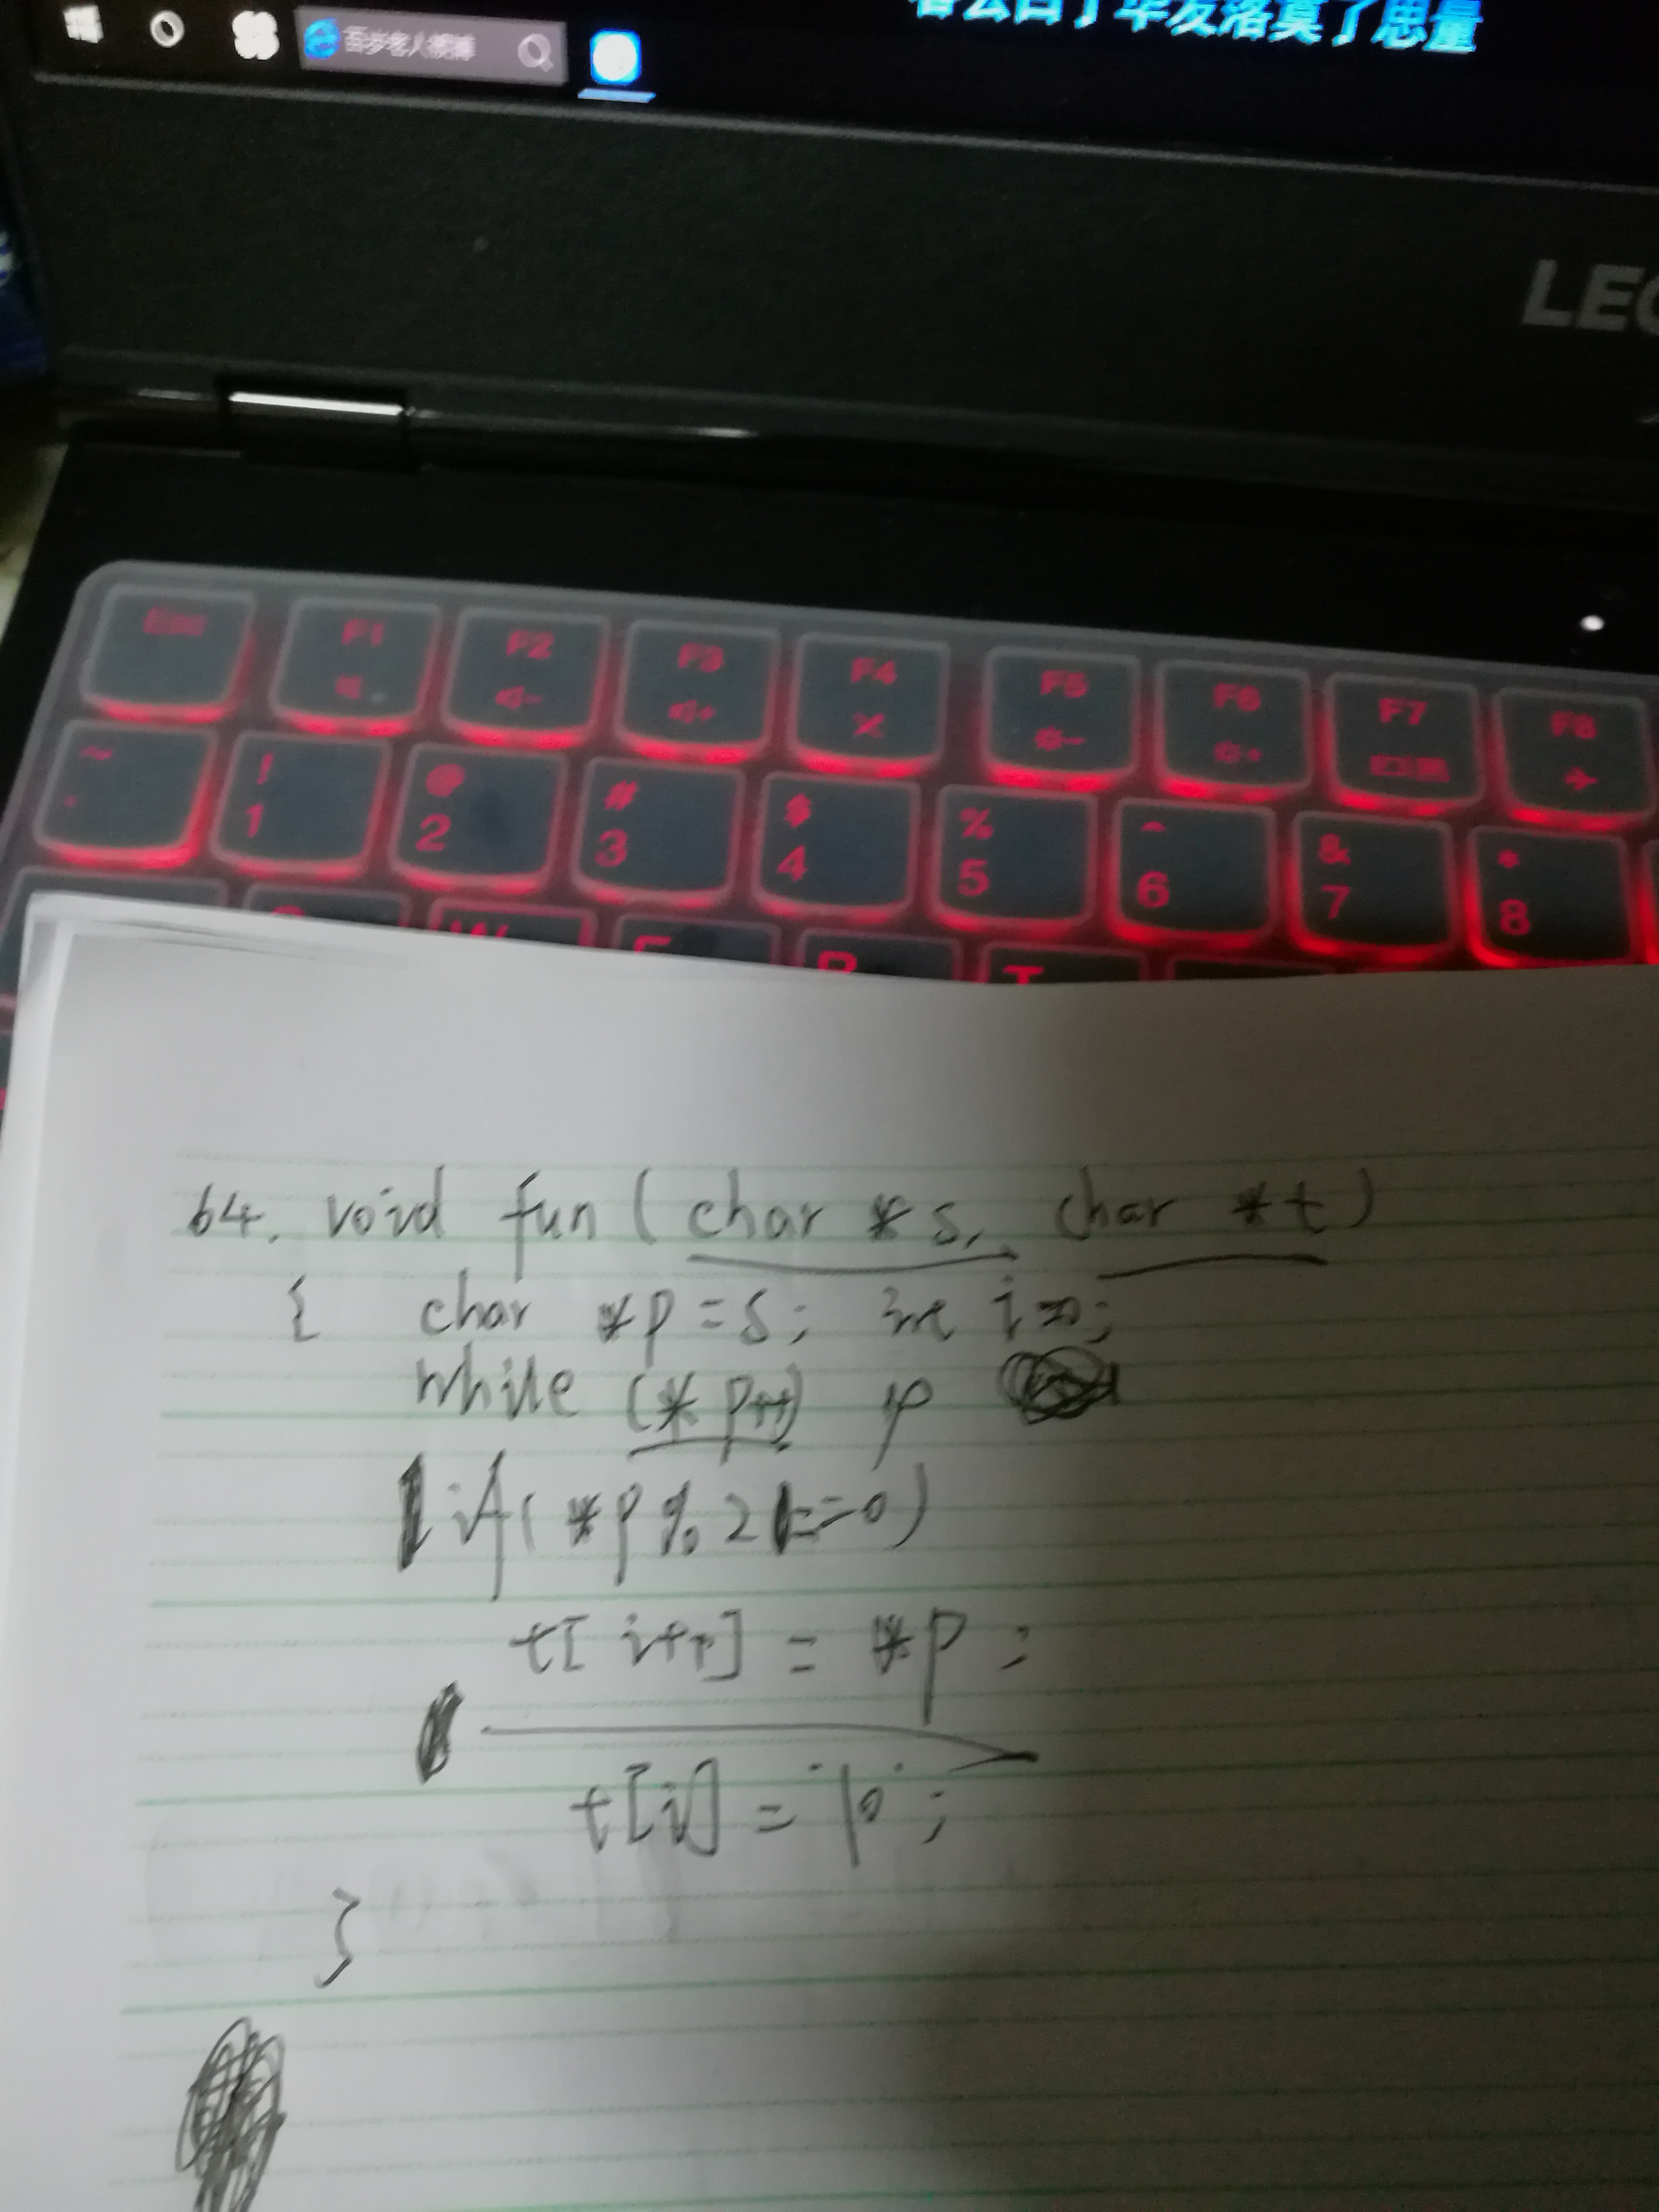 百步客人视博
LEG
Esc F1 F2 F3 F4 F5 F6 F7 F8
~ ! @ # $ % ^ & *
1 2 3 4 5 6 7 8
W E R T
64. void fun (char *s, char *t)
{ char *p=s; int i=0;
while (*p++)
if(*p%2==0)
t[i++] = *p;
t[i] = '\0';
}